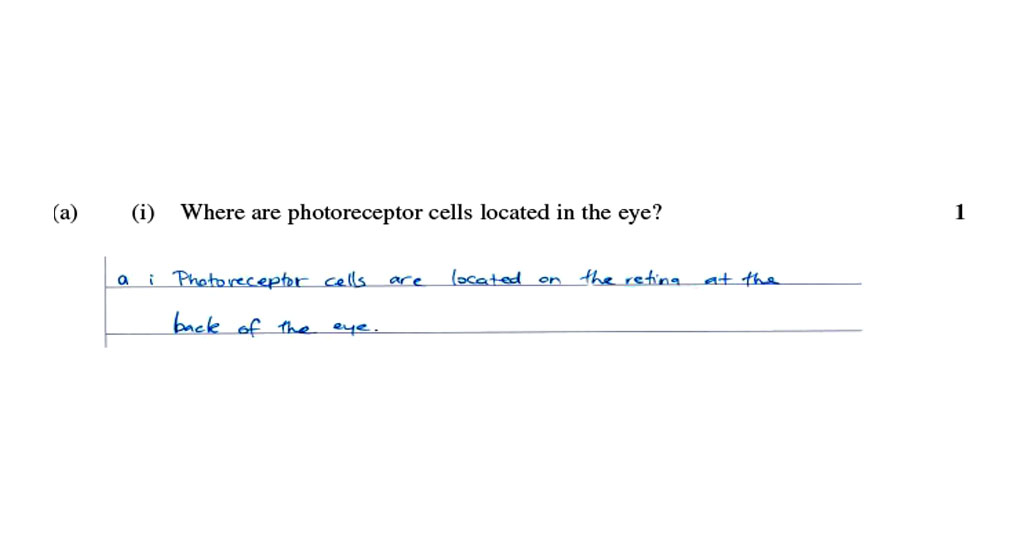 (a) (i) Where are photoreceptor cells located in the eye? 1
a i Photoreceptor cells are located on the retina at the
back of the eye.